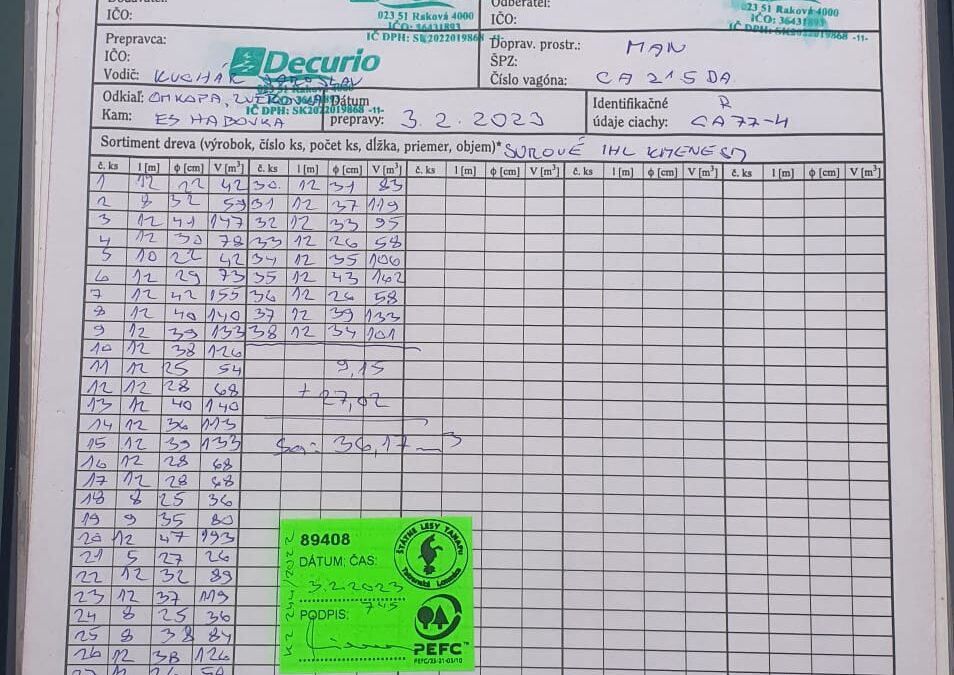 023 51 Raková 4000
IČO: 36431893
IČ DPH: SK2022019868 -11-
IČO:
Odberateľ:
IČO:
023 51 Raková 4000
IČO: 36431893
IČ DPH: SK2022019868 -11-
Prepravca:
IČO:
Vodič: KUCHÁR JAROSLAV
Decurio
023 51 Raková 4000
IČO: 36431893
IČ DPH: SK2022019868 -11-
Doprav. prostr.: MAN
ŠPZ:
Číslo vagóna: CA 215 DA
Odkiaľ: OMKOPA, ZVEROVKA
Kam: ES HABOVKA
Dátum
prepravy: 3. 2. 2023
Identifikačné R
údaje ciachy: CA 77-4
Sortiment dreva (výrobok, číslo ks, počet ks, dĺžka, priemer, objem)* SUROVÉ IHL KMENE SM
č. ks l [m] ϕ [cm] V [m³] č. ks l [m] ϕ [cm] V [m³] č. ks l [m] ϕ [cm] V [m³] č. ks l [m] ϕ [cm] V [m³] č. ks l [m] ϕ [cm] V [m³]
1 12 22 42 30. 12 31 83
2 8 32 59 31 12 37 119
3 12 41 147 32 12 33 95
4 12 30 78 33 12 26 58
5 10 22 42 34 12 35 106
6 12 29 73 35 12 43 162
7 12 42 155 36 12 26 58
8 12 40 140 37 12 39 133
9 12 39 133 38 12 34 101
10 12 38 126
11 12 25 54 9,15
12 12 28 68 + 27,02
13 12 40 140
14 12 36 113
15 12 39 133 Sa: 36,17 m3
16 12 28 68
17 12 28 68
18 8 25 36
19 9 35 80
20 12 47 193
21 5 27 26
22 12 32 89
23 12 37 119
24 8 25 36
25 8 38 84
26 12 38 126
89408
DÁTUM; ČAS:
3.2.2023
745
PODPIS:
ŠTÁTNE LESY TANAPU
Tatranská Lomnica
PEFC™
PEFC/23-21-03/10